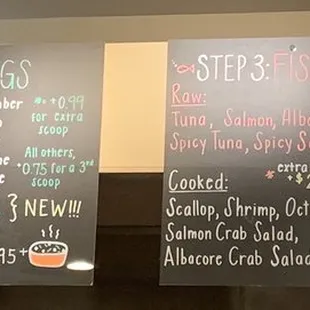 GS
* +0.99
for extra
scoop
All others,
+0.75 for a 3rd
scoop
} NEW!!!
95+
STEP 3: FIS
Raw:
Tuna, Salmon, Alba
Spicy Tuna, Spicy S
* extra
+$
Cooked:
Scallop, Shrimp, Oct
Salmon Crab Salad,
Albacore Crab Salad